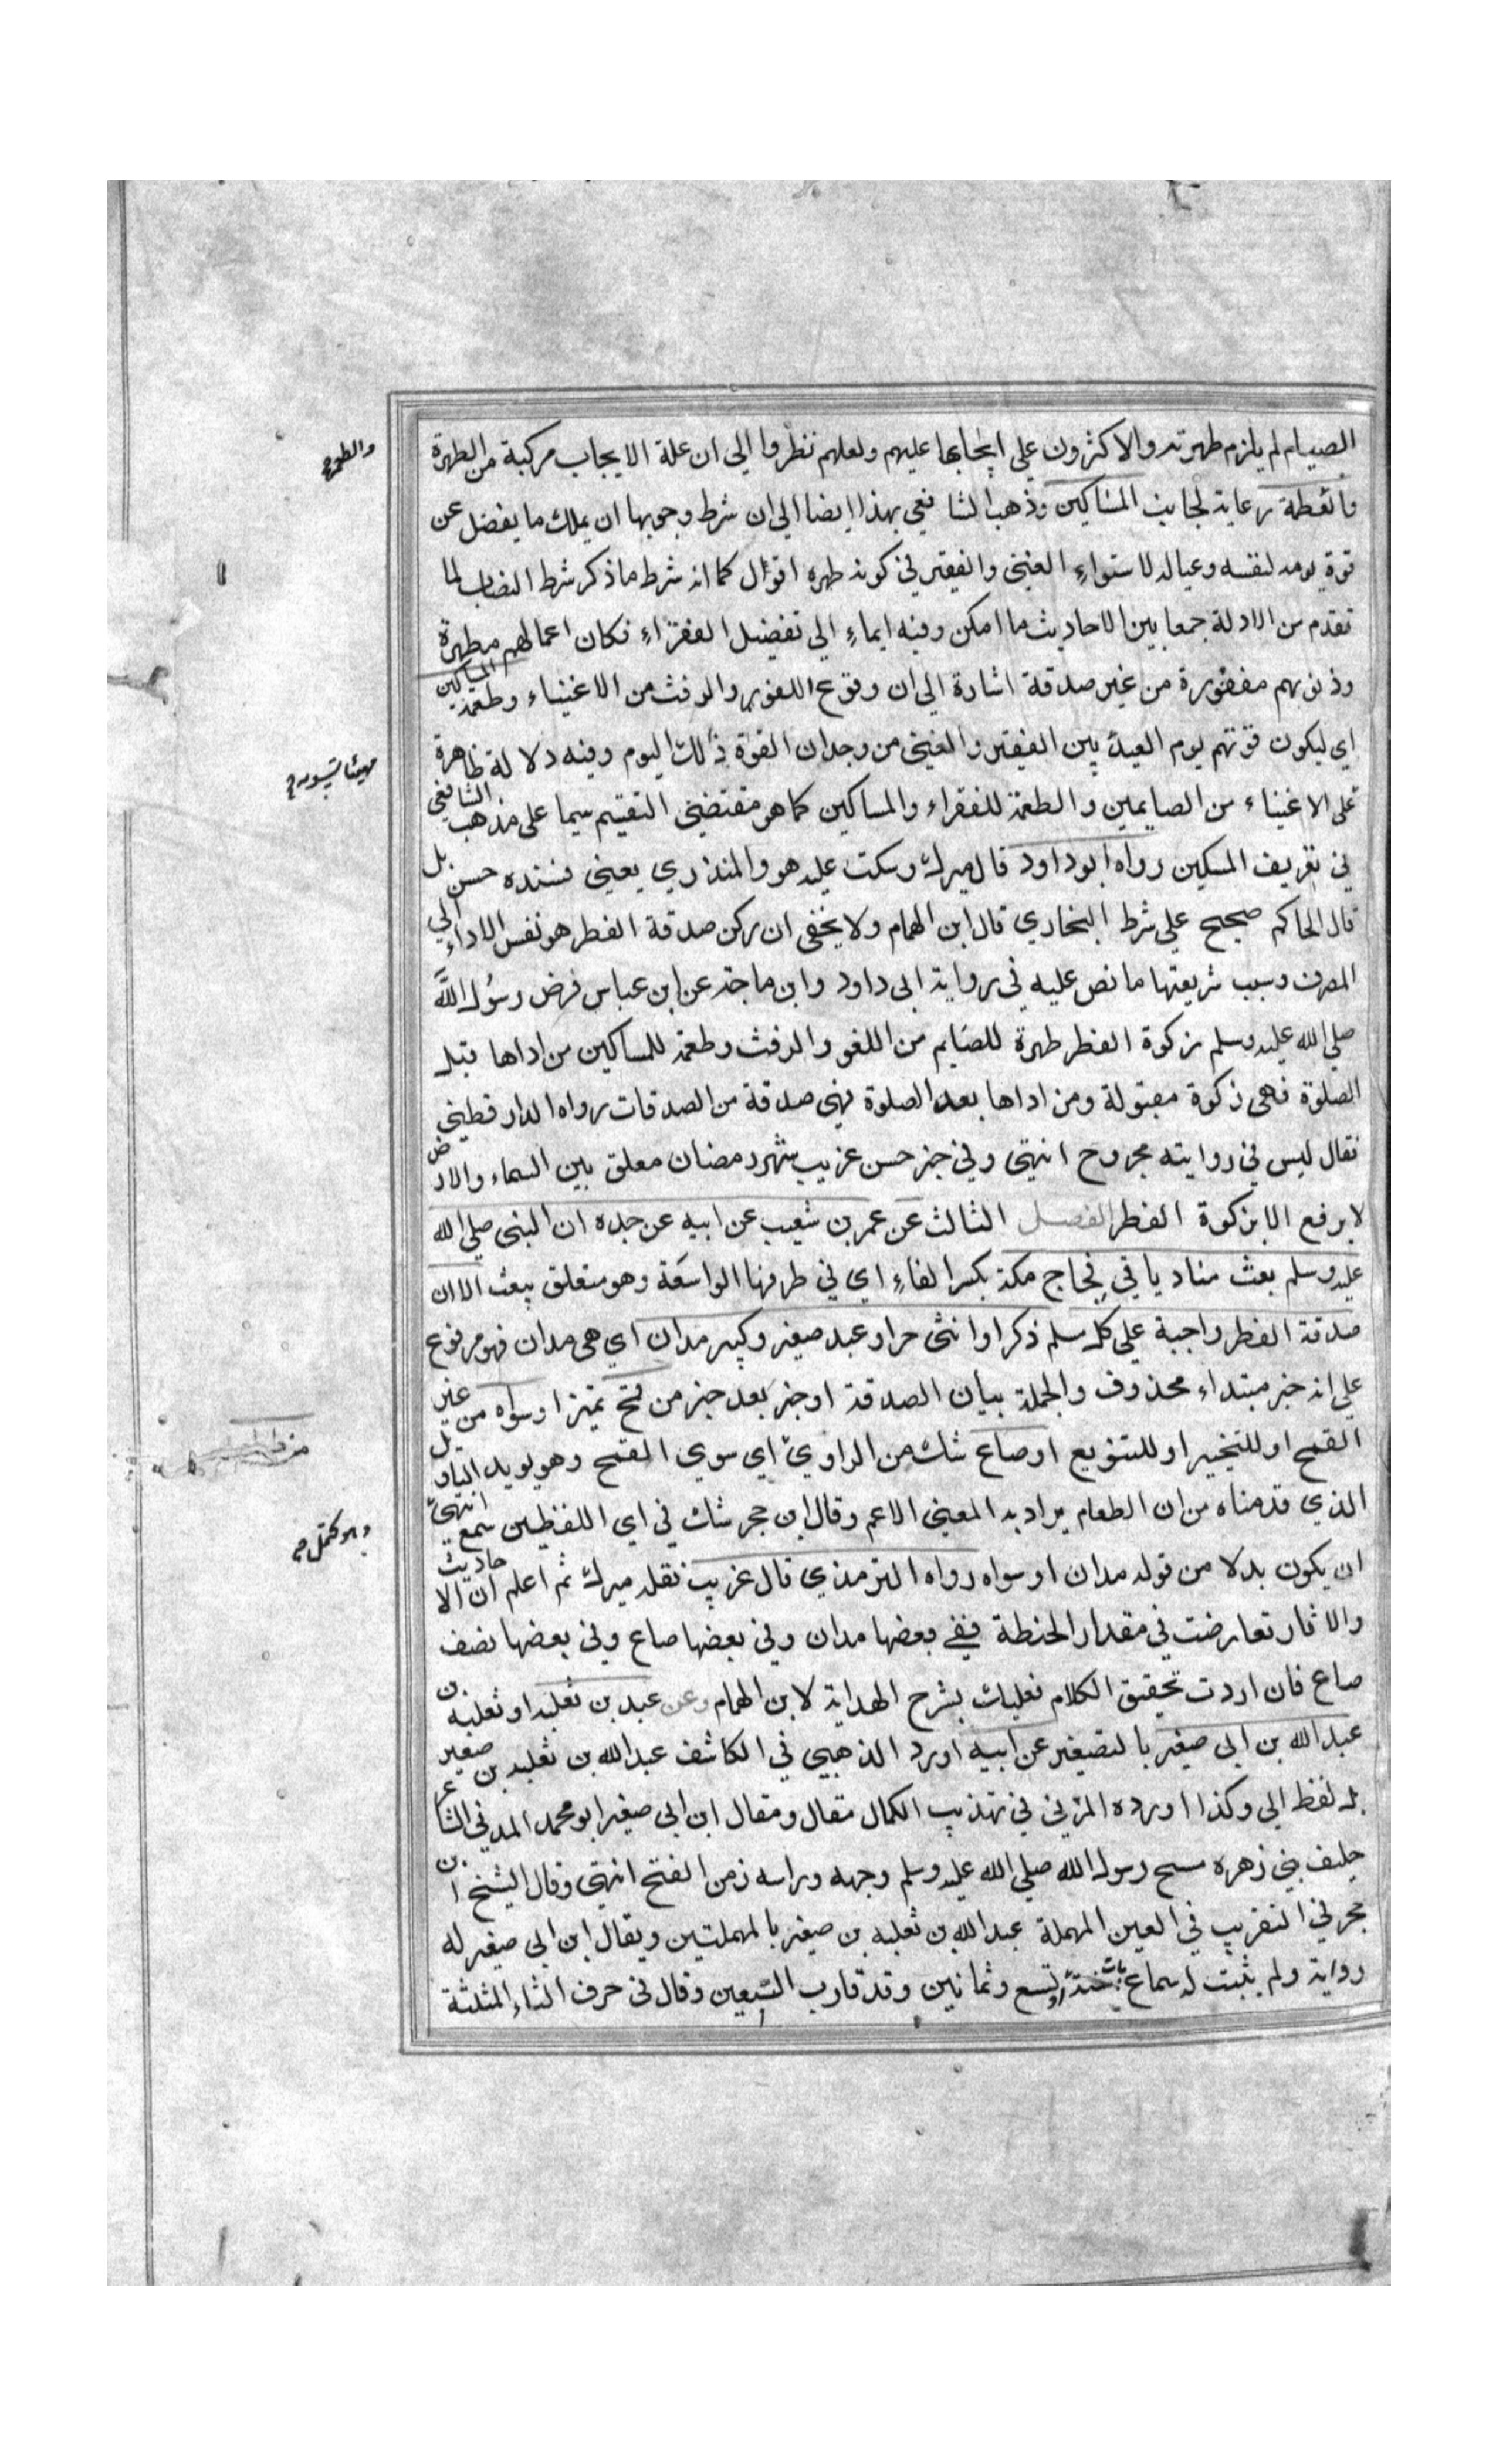 الصيام لم يلزم طهرته والاكثرون على ايجابها عليهم ولعلهم نظروا الى ان علة الايجاب مركبة من الطهرة
والطعمة
رعاية لجانب المساكين وذهب الشافعي بهذا ايضا الى ان شرط وجوبها ان يملك ما يفضل عن
قوة يومه لنفسه وعياله لاستواء الغني والفقير في كونه طهره اقول كما انه شرط ما ذكر شرط النصاب لما
تقدم من الادلة جمعا بين الاحاديث ما امكن وفيه ايماء الى تفضيل الفقراء فكان اعمالهم مطهرة
وذنوبهم مغفورة من غير صدقة اشارة الى ان وقوع اللغو والرفث من الاغنياء وطعمة المساكين
اي ليكون قوتهم يوم العيد بين الفقير والغني من وجدان القوة ذلك اليوم وفيه دلالة ظاهرة
على الاغنياء من الصايمين والطعمة للفقراء والمساكين كما هو مقتضى التقسيم سيما على مذهب الشافعي
في تعريف المسكين رواه ابو داود قال ميرك وسكت عليه هو والمنذري يعني فسنده حسن بل
قال الحاكم صحيح على شرط البخاري قال ابن الهمام ولا يخفى ان ركن صدقة الفطر هو نفس الاداء الي
المصرف وسبب شريعتها ما نص عليه في رواية ابى داود وابن ماجة عن ابن عباس فرض رسول الله
صلى الله عليه وسلم زكوة الفطر طهرة للصايم من اللغو والرفث وطعمة للمساكين من اداها قبل
الصلوة فهى زكوة مقبولة ومن اداها بعد الصلوة فهى صدقة من الصدقات رواه الدارقطنى
فقال ليس في روايته مجروح انتهى وفي خبر حسن غريب شهر رمضان معلق بين السماء والارض
لا يرفع الا بزكوة الفطر الفصل الثالث عن عمر بن شعيب عن ابيه عن جده ان النبى صلى الله
عليه وسلم بعث مناديا في فجاج مكة بكسر الفاء اي في طرقها الواسعة وهو متعلق ببعث الا ان
صدقة الفطر واجبة على كل مسلم ذكر او انثى حر او عبد صغير وكبير مدان اي هى مدان فهو مرفوع
على انه خبر مبتداء محذوف والجملة بيان الصدقة او خبر بعد خبر من قمح تميز او سواه من غير
القمح او للتخيير او للتنويع او صاع شك من الراوي اي سوي القمح وهو يويد التاويل
الذي قدمناه من ان الطعام يراد به المعنى الاعم وقال ابن حجر شك في اي اللفظين سمع انتهى
ان يكون بدلا من قوله مدان او سواه رواه الترمذي قال غريب نقله ميرك ثم اعلم ان الاحاديث
والاثار تعارضت في مقدار الحنطة ففي بعضها مدان وفي بعضها صاع وفي بعضها نصف
صاع فان اردت تحقيق الكلام فعليك بشرح الهداية لابن الهمام وعن عبد بن ثعلبه او ثعلبه بن
عبد الله بن ابى صغير بالتصغير عن ابيه اورد الذهبي في الكاشف عبد الله بن ثعلبه بن صغير
بل لفظ ابى وكذا اورده المزني في تهذيب الكمال فقال ومقال ابن ابي صغير ابو محمد المدني الشاعر
حليف بني زهره مسح رسول الله صلى الله عليه وسلم وجهه وراسه زمن الفتح انتهى وقال الشيخ ابن
حجر في التقريب في العين المهملة عبد الله بن ثعلبه بن صغير بالمهملتين ويقال ابن ابى صغير له
رواية ولم يثبت له سماع تسع وثمانين وقد قارب التسعين وقال في حرف الثاء المثلثة
والطعمة صح